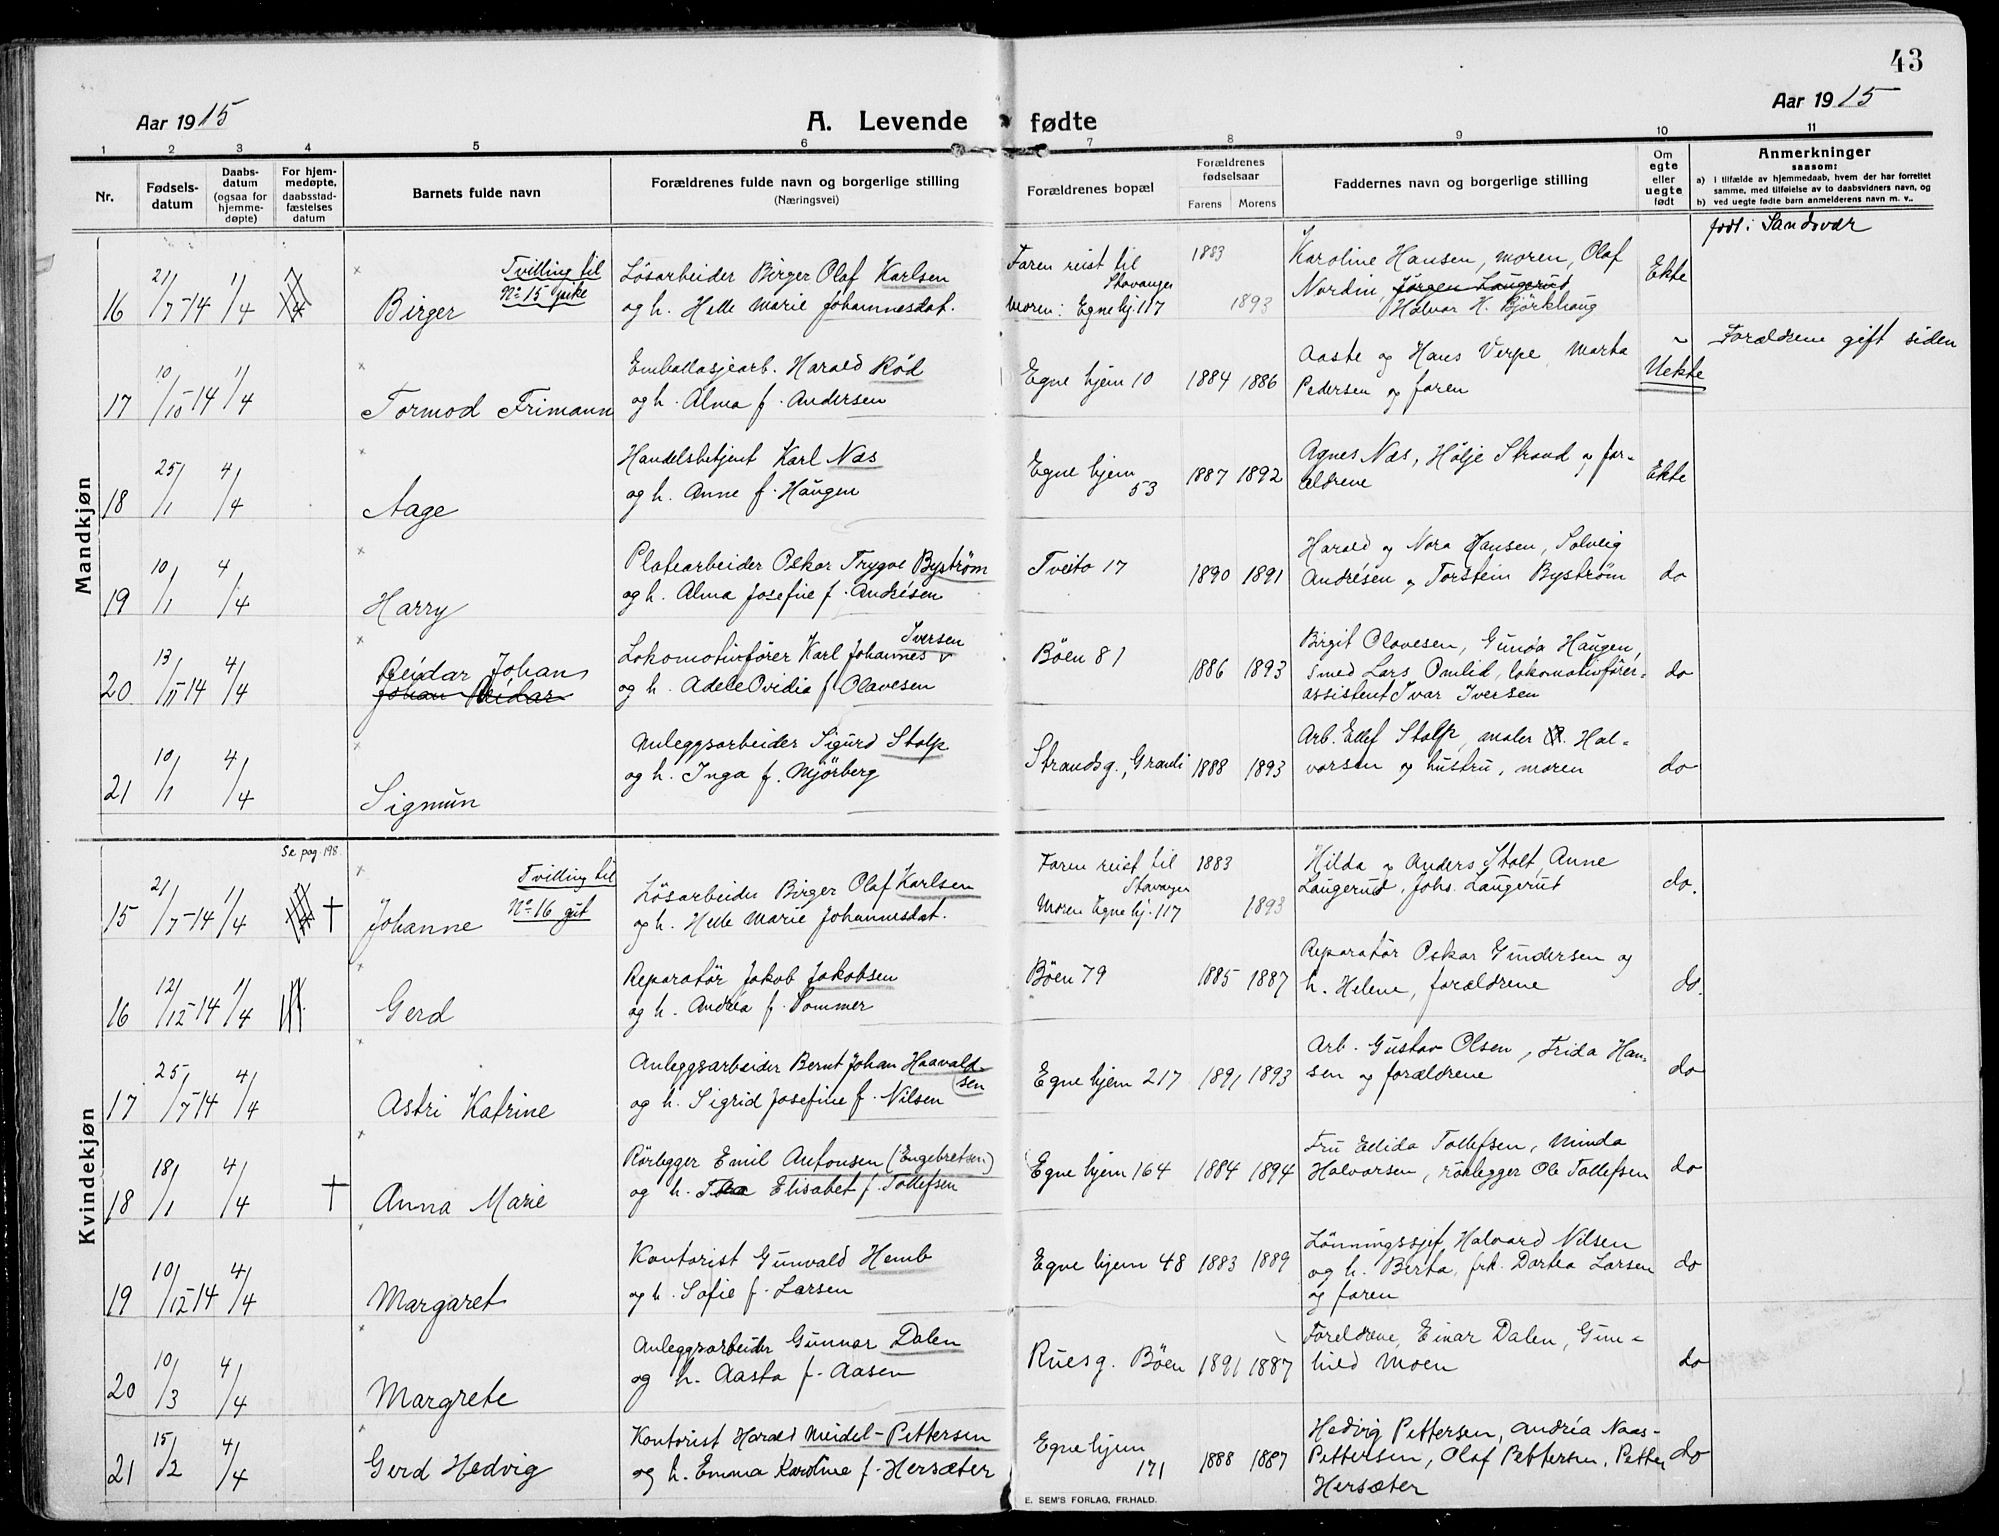 43
Aar 1915
A. Levende fødte
Aar 1915
1 2 3 4 5 6 7 8 9 10 11
Nr.
Fødsels-
datum
Daabs-
datum
(ogsaa for
hjemme-
døpte)
For hjem-
medøpte,
daabsstad-
fæstelses
datum
Barnets fulde navn
Forældrenes fulde navn og borgerlige stilling
(Næringsvei)
Forældrenes bopæl
Forældrenes
fødselsaar
Farens Morens
Faddernes navn og borgerlige stilling
Om
egte
eller
uegte
født
Anmerkninger
saasom:
a) i tilfælde av hjemmedaab, hvem der har forrettet
samme, med tilføielse av to daabsvidners navn, og
b) ved uegte fødte barn anmelderens navn m. v..
Mandkjøn
født i Sandsvær
16 21/7-14 1/4
Tvilling til
No 15 pike
Birger
Løsarbeider Birger Olaf Karlsen
og h. Helle Marie Johannesdat.
Faren reist til
Stavanger
Moren: Egnehj. 117
1883
1893
Karoline Hansen, moren, Olaf
Nordin, Jørgen Laugerud
Halvor H. Björkhaug
Ekte
17 10/10-14 1/4
Tormod Frimann
Emballasjearb. Harald Röd
og h. Alma f. Andersen
Egne hjem 10 1884 1886
Aaste og Hans Verpe, Marta
Pedersen og faren
Uekte
Forældrene gift siden
18 25/1 4/4
Aage
Handelsbetjent Karl Næs
og h. Anne f. Haugen
Egne hjem
53
1887 1892
Agnes Næs, Hölje Strand og for-
ældrene
Ekte
19 10/1 4/4
Harry
Platearbeider Oskar Trygve Byström
og h. Alma Josefine f. Andrésen
Tveito 17 1890 1891
Harald og Nora Hansen, Solveig
Andrésen og Torstein Byström
do
20 13/11-14 4/4
Reidar Johan
Johan Reidar
Lokomotivfører Karl Johannes Iversen
og h. Adele Ovidia f. Olavesen
Böen 81 1886 1893
Birgit Olavesen, Gunda Haugen,
smed Lars Omlid, lokomotivfører-
assistent Ivar Iversen
do
21 10/1 4/4
Sigmun
Anleggsarbeider Sigurd Stolp
og h. Inga f. Mjörberg
Strandsg., Grandi 1888 1893
Arb. Ellef Stolp, maler R. Hal-
vorsen og hustru, moren
do
Kvindekjøn
Se pag. 198
15 21/7-14 1/4 †
Tvilling til
No 16 gut
Johanne
Løsarbeider Birger Olaf Karlsen
og h. Helle Marie Johannesdat.
Faren reist til
Stavanger
Moren Egne hj. 117
1883
1893
Hilda og Anders Stalt, Anne
Laugerud, Johs. Laugerud
do.
16 12/12-14 1/4
Gerd
Reparatør Jakob Jakobsen
og h. Andréa f. Sommer
Böen 79 1885 1887
Reparatør Oskar Gundersen og
h. Helene, forældrene
do.
17 25/7-14 4/4
Astri Katrine
Anleggsarbeider Bernt Johan Haavald-
sen
og h. Sigrid Josefine f. Nilsen
Egne hjem 217 1891 1893
Arb. Gustav Olsen, Frida Han-
sen og forældrene
do
18 18/1 4/4 †
Anna Marie
Rørlegger Emil Antonsen (Engebretsen)
og h. Elisabet f. Tollefsen
Egne hjem 164 1884 1894
Fru Ellida Tollefsen, Minda
Halvorsen, rørlegger Ole Tollefsen
do
19 10/12-14 4/4
Margaret
Kontorist Gunvald Hemb
og h. Sofie f. Larsen
Egne hjem 48 1883 1889
Lønningssjef Halvard Nilsen
og h. Berta, frk. Dortea Larsen
og faren
do
20 10/3 4/4
Margrete
Anleggsarbeider Gunnar Dalen
og h. Aasta f. Aasen
Ruesg. Böen 1891 1887
Foreldrene, Einar Dalen, Gun-
hild Moen
do
21 15/2 4/4
Gerd Hedvig
Kontorist Harald Meidel-Pettersen
og h. Emma Karoline f. Hersæter
Egne hjem
171
1888 1887
Hedvig Pettersen, Andréa Naas-
Pettersen, Olaf Pettersen, Petter
Hersæter
do
E. SEM'S FORLAG, FR.HALD.